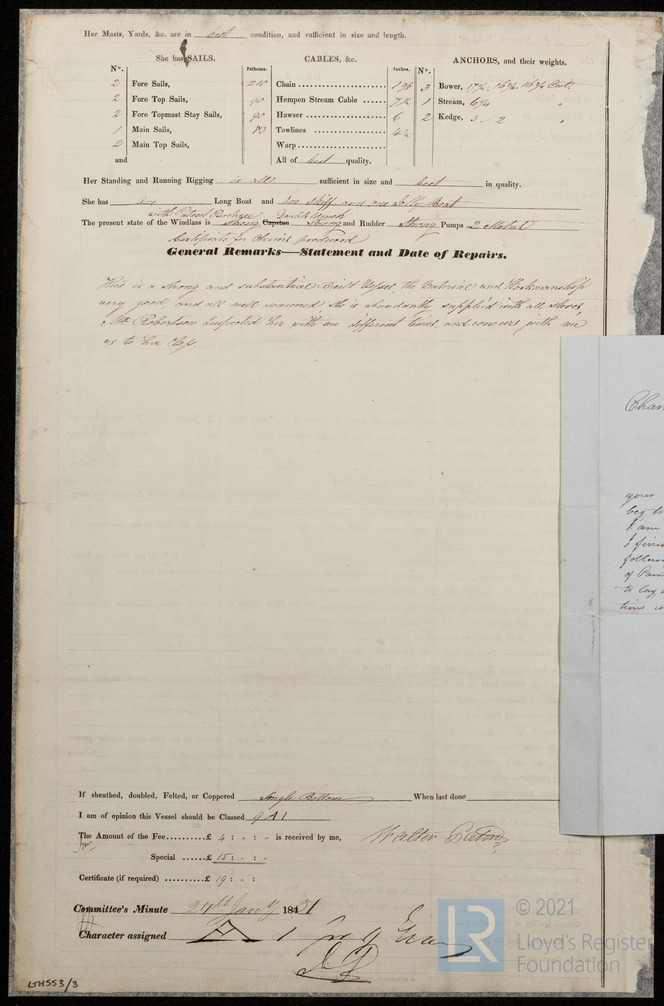 Her Masts, Yards, &c. are in best condition, and sufficient in size and length.
She has SAILS. CABLES, &c. ANCHORS, and their weights.
N°. Fathoms. Inches. N°.
2 Fore Sails, 210 Chain 3 Bower,
2 Fore Top Sails, 90 Hempen Stream Cable 1 Stream,
2 Fore Topmast Stay Sails, 90 Hawser 6 2 Kedge, 3. 2
1 Main Sails, 80 Towlines
2 Main Top Sails, Warp
and All of best quality.
Her Standing and Running Rigging is all sufficient in size and best in quality.
She has one Long Boat and one skiff and one Jolly Boat
with Patent Purchase Double winch
The present state of the Windlass is Strong Capstan Strong and Rudder Strong Pumps 2 Metal
Certificate for Chains produced
General Remarks—Statement and Date of Repairs.
This is a strong and substantial Vessel, the Material and Workmanship
very good, and all well seasoned She is abundantly supplied with all stores,
Mr Robertson Inspected her with me different times, and concurs with me
as to her Class.
Chan
your
beg to
I am
I
follow
of
to lay
time
If sheathed, doubled, Felted, or Coppered Single Bottom When last done
I am of opinion this Vessel should be Classed 9 A 1
The Amount of the Fee..........£ 4 : - : - is received by me, Walter
Special ......£ 15 : - : -
Certificate (if required) ..........£ 19 : - :
Committee's Minute 24th Jany 1851
Character assigned A 1 for 9 Years
LR
© 2021
Lloyd's Register
Foundation
LTH553/3